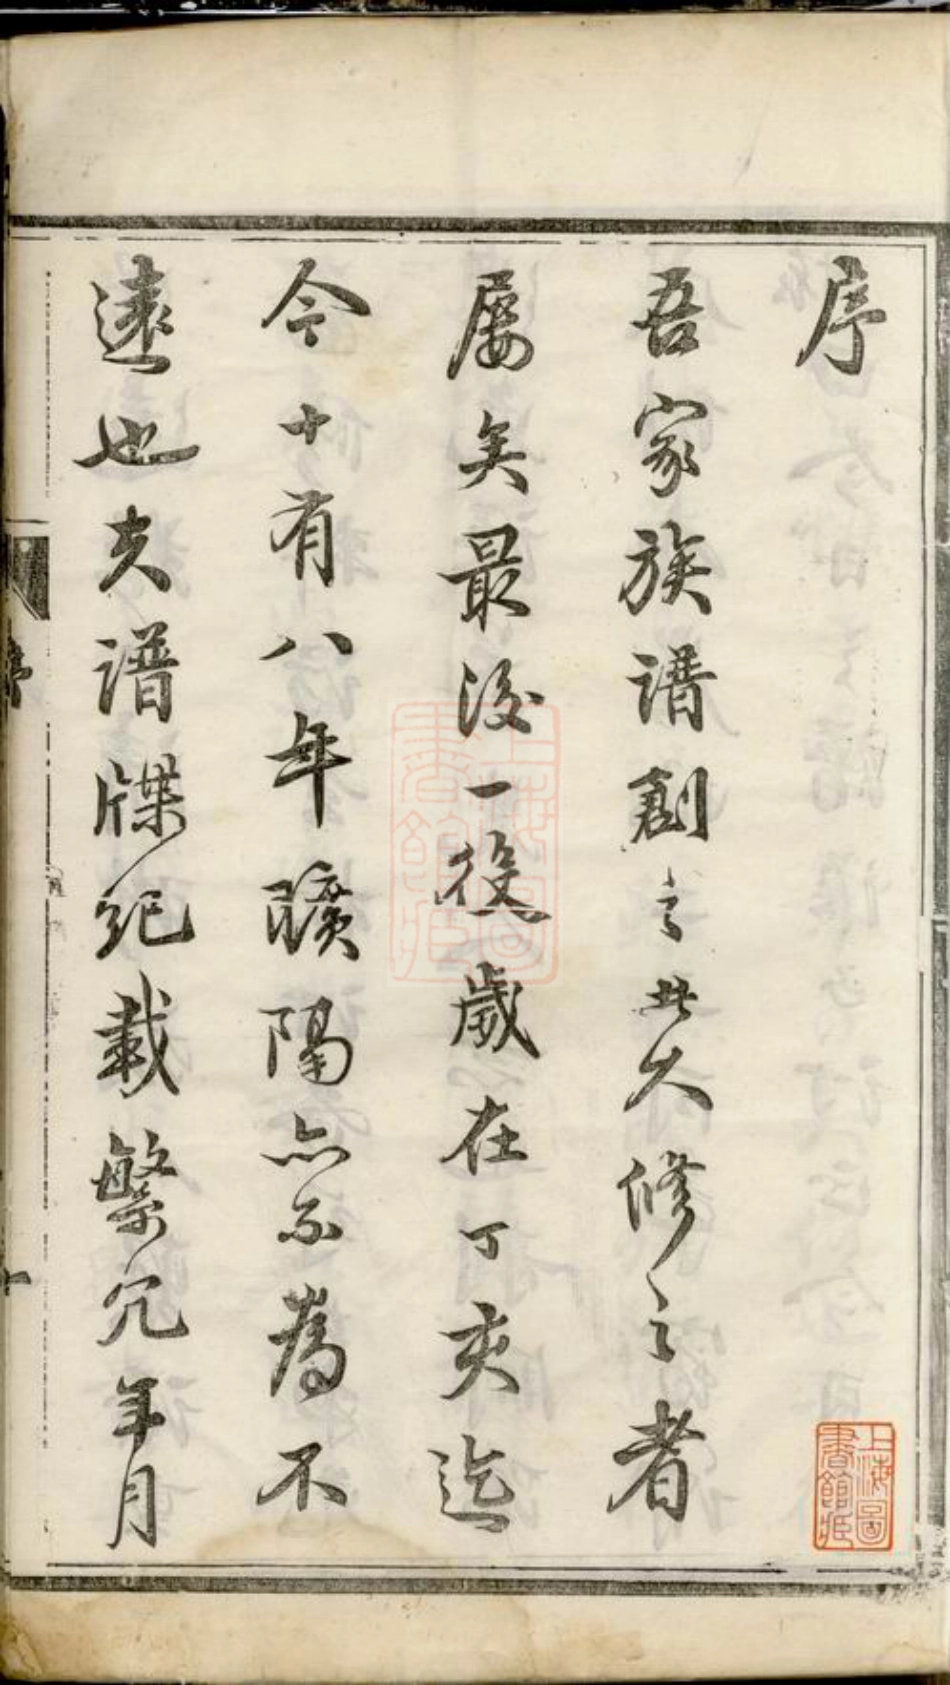 序
吾家族譜創之甚久修之者
屢矣最後一役歲在丁亥迄
今十有八年曠隔亦不為不
遠也夫譜牒紀載繁冗年月
序
上海圖書館藏
上海圖書館藏